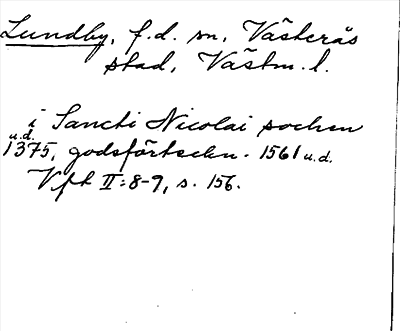 Lundby, f.d. sn, Västerås
stad, Västm. l.
i Sancti Nicolai socken
u.d.
1375, godsförteckn. 1561 u.d.
Vfk II:8-9, s. 156.